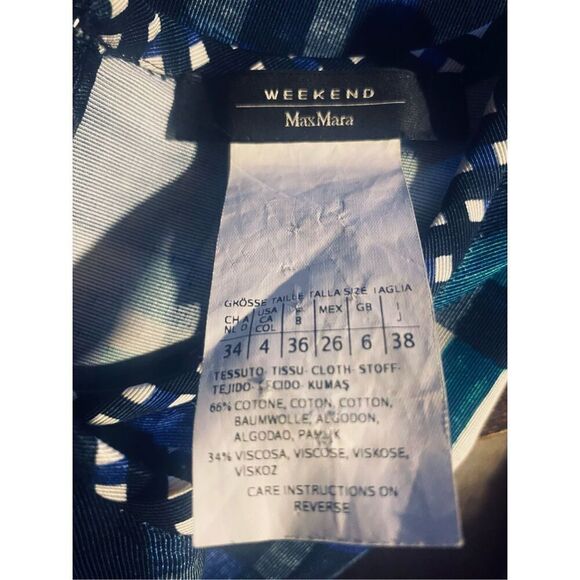 WEEKEND
MaxMara
GRÖSSE TAILLE TALLA SIZE TAGLIA
CH A USA F MEX GB I
NL D CA B J
COL
34 4 36 26 6 38
TESSUTO- TISSU- CLOTH- STOFF-
TEJIDO- TECIDO- KUMAŞ
66% COTONE, COTON, COTTON,
BAUMWOLLE, ALGODON,
ALGODAO, PAMUK
34% VISCOSA, VISCOSE, VISKOSE,
VİSKOZ
CARE INSTRUCTIONS ON
REVERSE